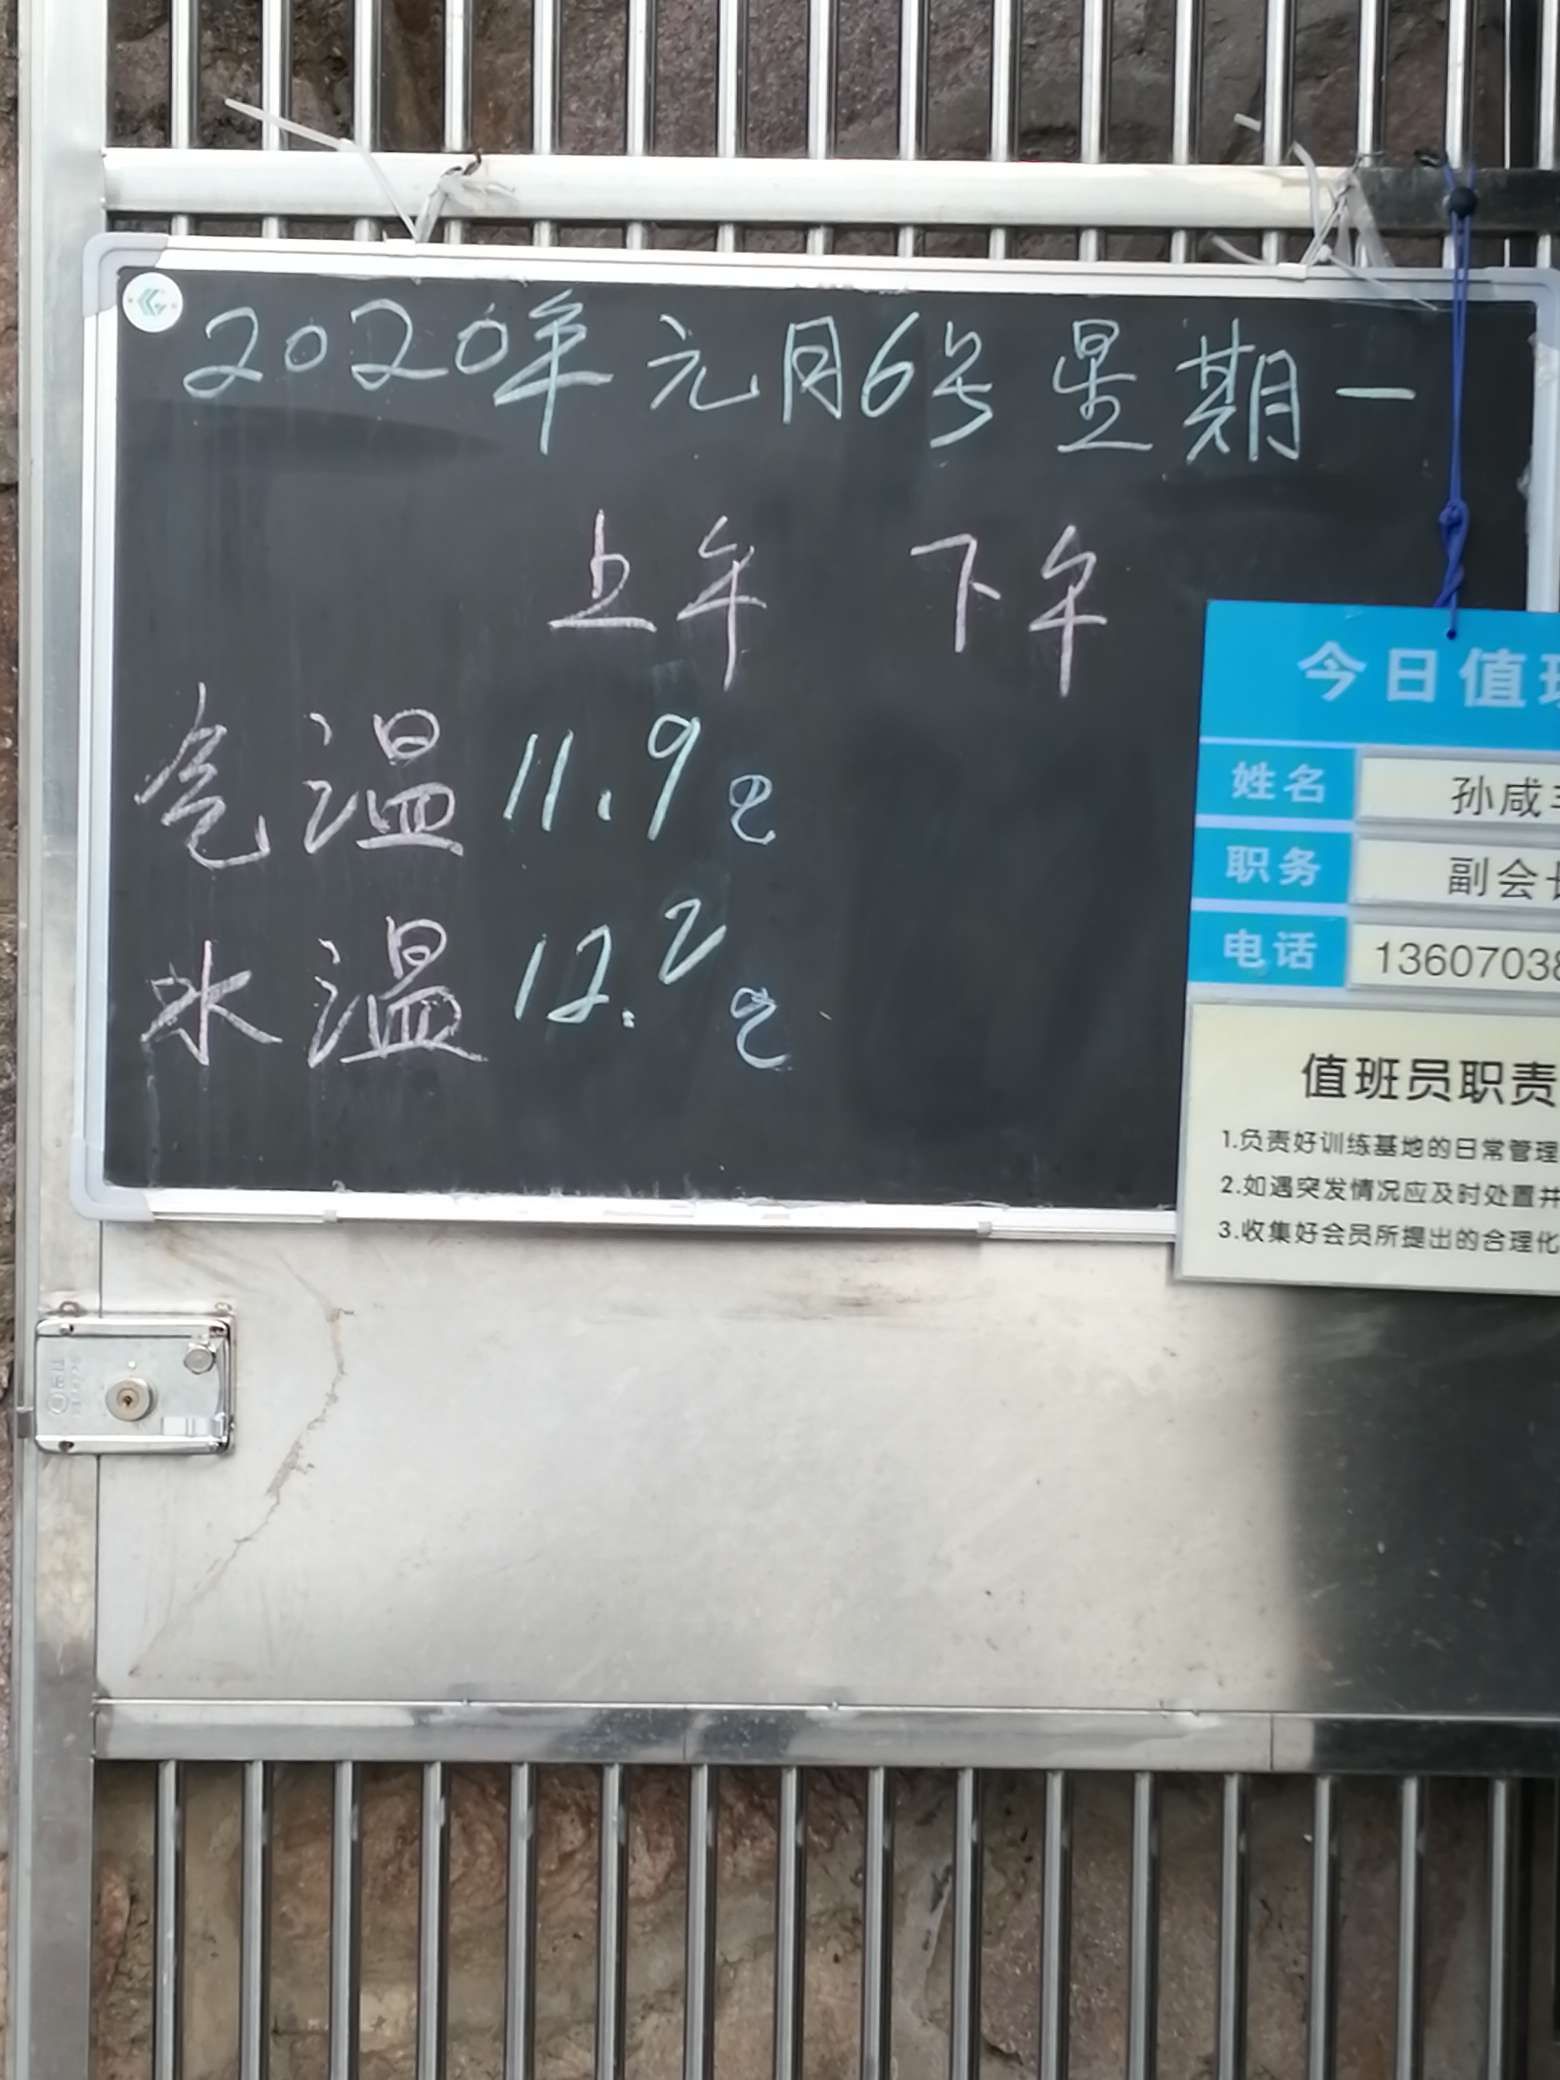 2020年元月6号星期一
上午 下午
气温 11.9℃
水温 12.2℃
今日值
姓名 孙咸
职务 副会
电话 1360703
值班员职责
1.负责好训练基地的日常管理
2.如遇突发情况应及时处置并
3.收集好会员所提出的合理化